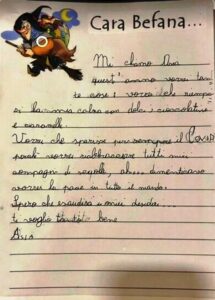 Cara Befana...
Mi chiamo
quest'anno vorrei tan
te cose: vorrei che riempa
si la mia calza con dolci cioccolatini
e caramelle.
Vorrei che sparisse per sempre il Covid
perché vorrei riabbracciare tutti i miei
compagni di scuola, ah... dimenticavo
vorrei la pace in tutto il mondo.
Spero che esaudirai i miei desideri...
ti voglio tanto bene